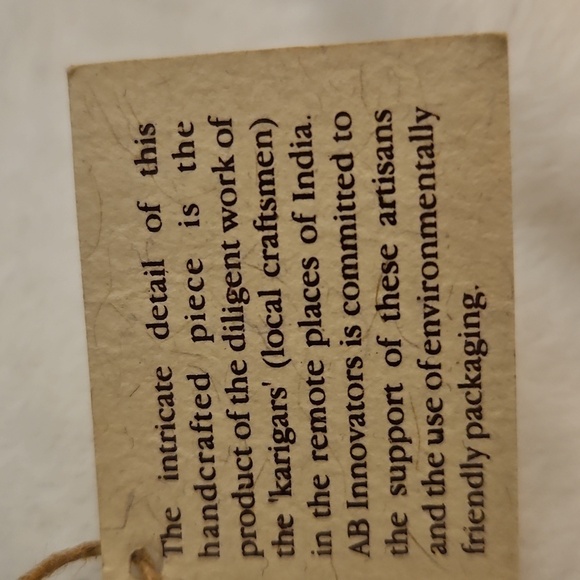 The intricate detail of this
handcrafted piece is the
product of the diligent work of
the 'karigars' (local craftsmen)
in the remote places of India.
AB Innovators is committed to
the support of these artisans
and the use of environmentally
friendly packaging.